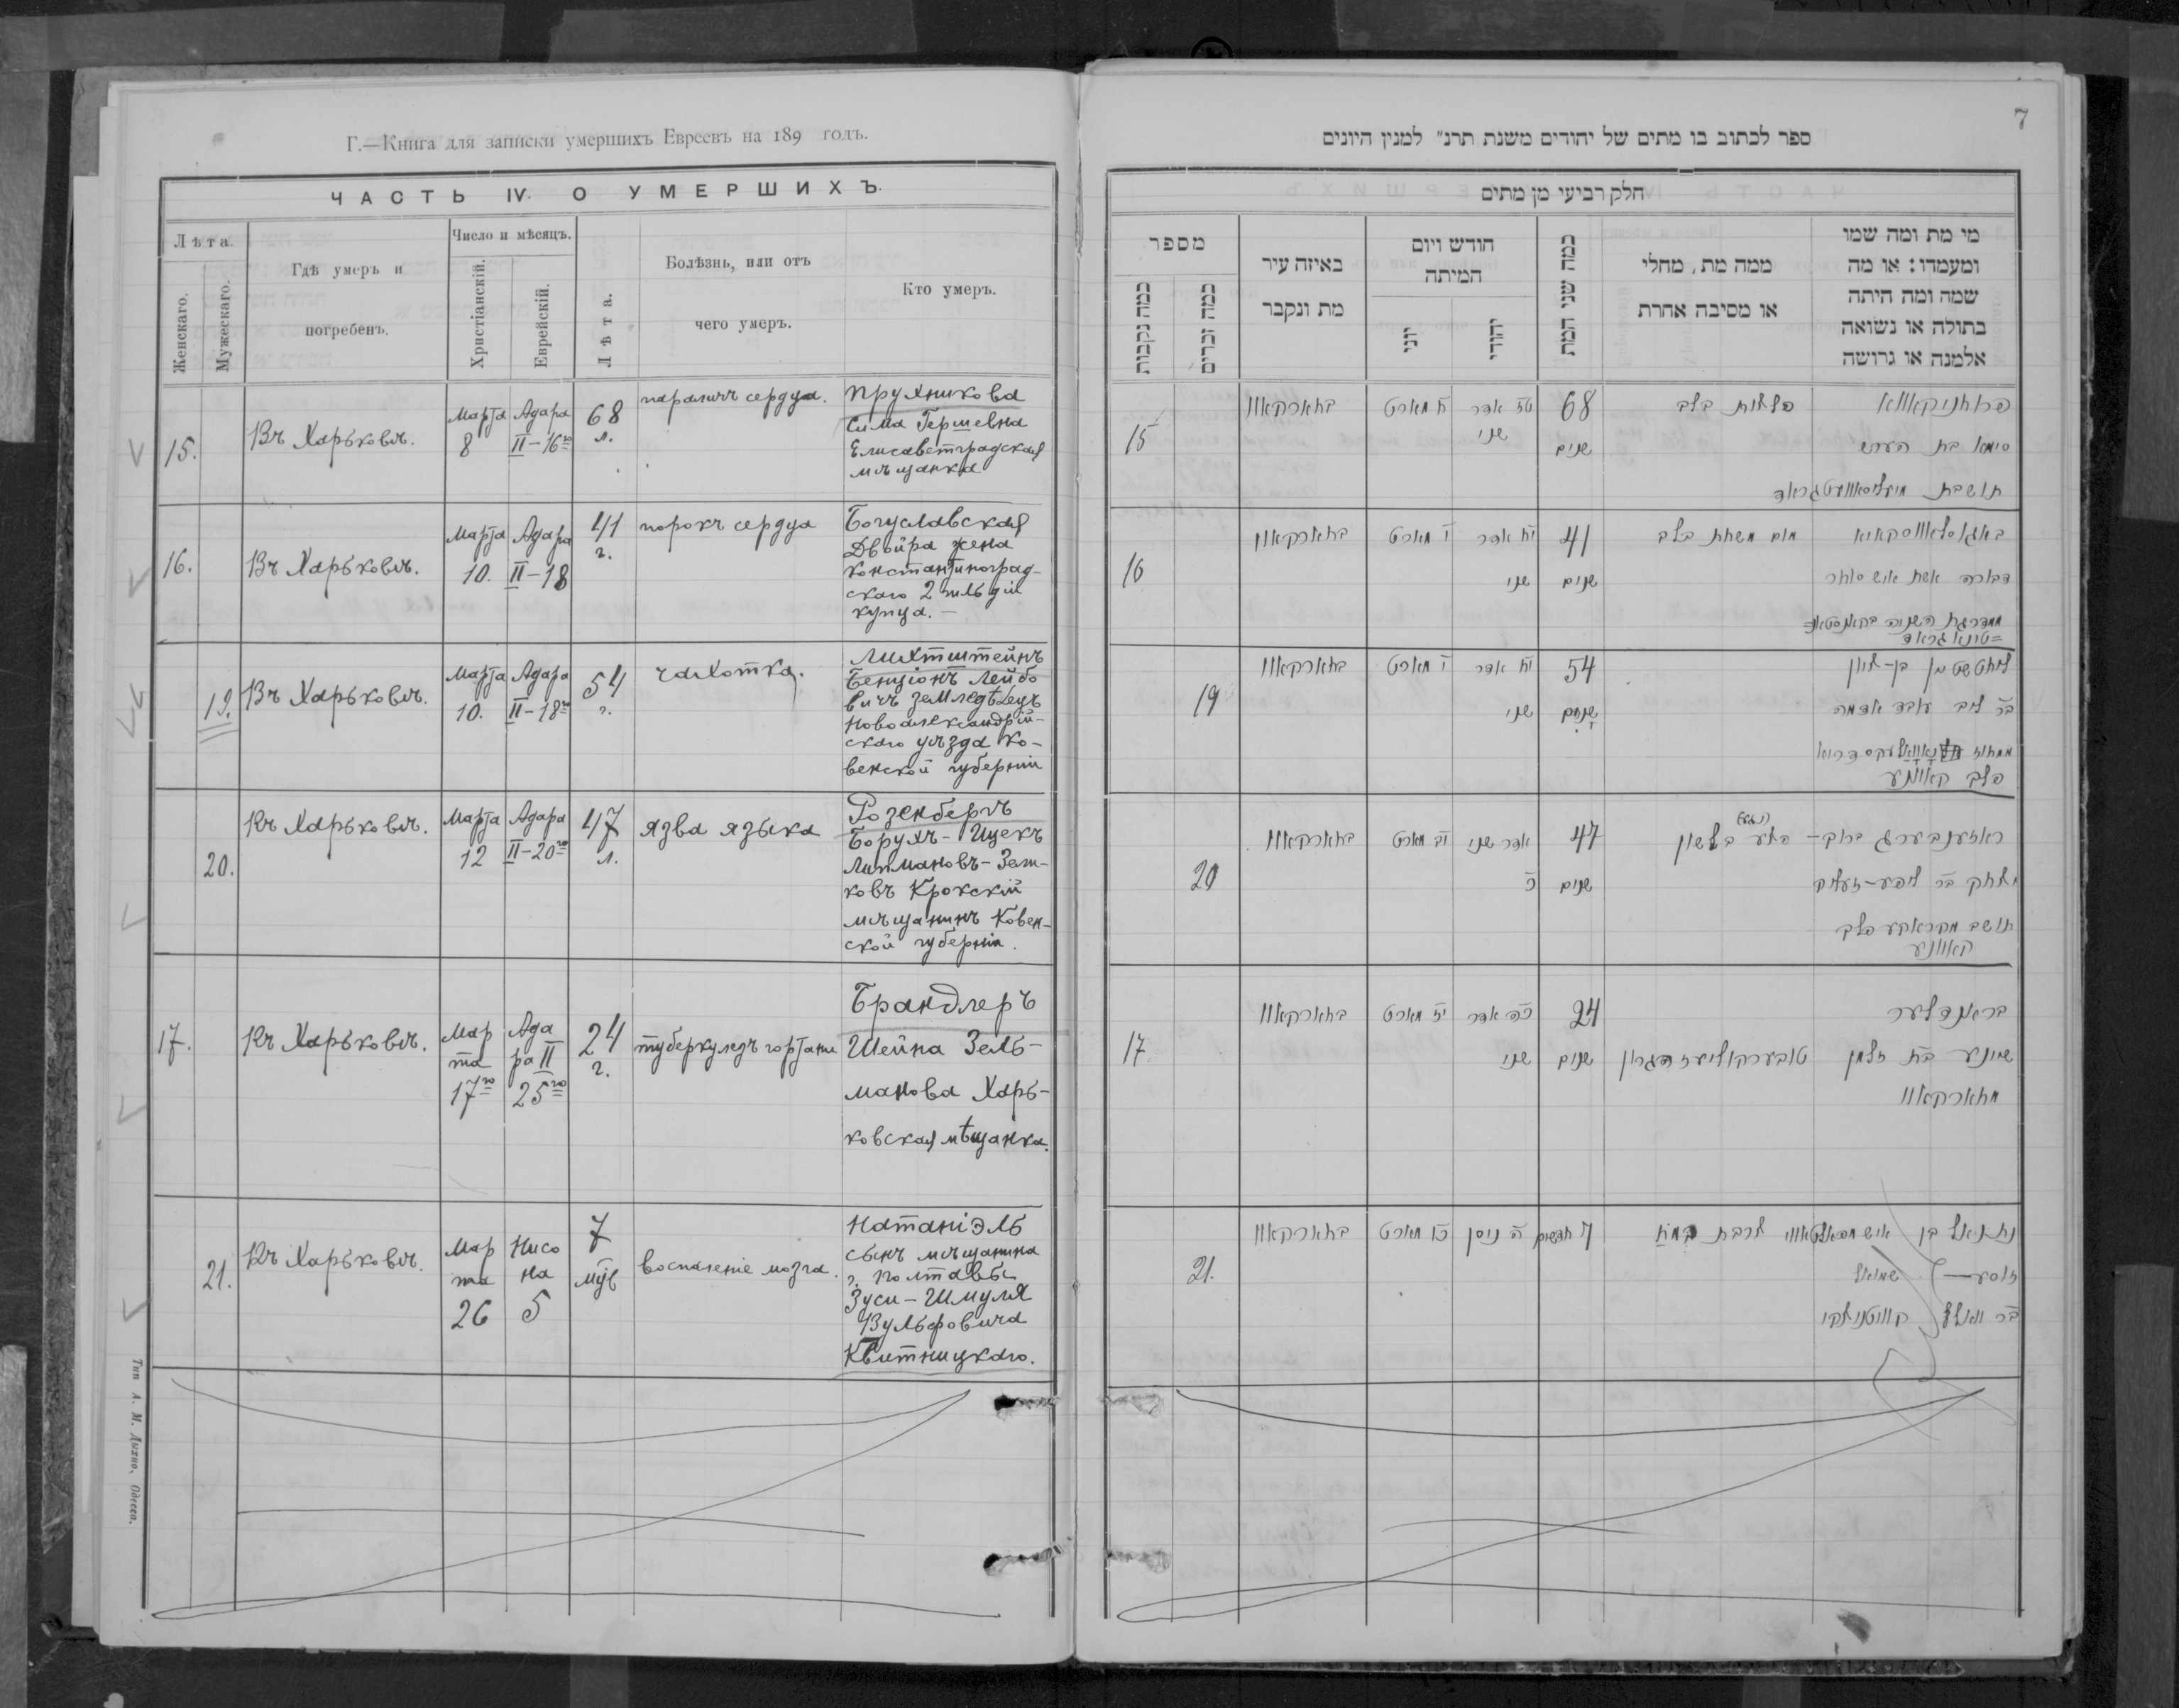 Г.—Книга для записки умершихъ Евреевъ на 189 годъ.
ЧАСТЬ IV. О УМЕРШИХЪ.
Лѣта.
Женскаго.
Мужескаго.
Гдѣ умеръ и
погребенъ.
Число и мѣсяцъ.
Христіанскій.
Еврейскій.
Лѣта.
Болѣзнь, или отъ
чего умеръ.
Кто умеръ.
15.
Въ Харьковѣ.
Марта
8
Адара
II–16го
68
л.
параличъ сердца.
Прутникова
Сима Гершевна
Елисаветградская
мѣщанка
16.
Въ Харьковѣ.
Марта
10.
Адара
II–18
41
г.
порокъ сердца
Богуславская
Двойра жена
Константиноград-
скаго 2 гильдіи
купца.–
19.
Въ Харьковѣ.
Марта
10.
Адара
II–18го
54
г.
чахотка.
Лихтштейнъ
Бенціонъ Лейбо
вичъ земледѣлецъ
Новоалександрій-
скаго уѣзда Ко-
венской губерніи
20.
Въ Харьковѣ.
Марта
12
Адара
II–20го
47
л.
язва языка
Розенбергъ
Борухъ-Ицекъ
Липмановъ-Зели-
ковъ Крокскій
мѣщанинъ Ковен-
ской губерніи.
17.
Въ Харьковѣ.
Мар
та
17го
Ада
ра II
25го
24
г.
туберкулезъ гортани
Брандлеръ
Шейна Зель-
манова Харь-
ковская мѣщанка.
21.
Въ Харьковѣ.
Мар
та
26
Нисо
на
5
7
мѣс
воспаленіе мозга.
Натаніэль
сынъ мѣщанина
г. Полтавы
Зуси-Шмуля
Вульфовича
Квитницкаго.
Тип. А. М. Дыхно, Одесса.
7
ספר לכתוב בו מתים של יהודים משנת תרנ״ למנין היונים
חלק רביעי מן מתים
מי מת ומה שמו
ומעמדו: או מה
שמה ומה היתה
בתולה או נשואה
אלמנה או גרושה
ממה מת, מחלי
או מסיבה אחרת
כמה שני המת
חודש ויום
המיתה
יהודי
יוני
באיזה עיר
מת ונקבר
מספר
כמה זכרים
כמה נקבות
סימא בת הערש
68
שנים
טז אדר
שני
ח מארט
בחארקאוו
15
דבורה אשת איש סוחר
41
שנים
יח אדר
שני
י מארט
בחארקאוו
16
בר ליב עובד אדמה
54
שנים
יח אדר
שני
י מארט
בחארקאוו
19
ראזענבערג ברוך-
יצחק בר ליפע-זעליק
תושב מקראקע פלך
קאוונע
47
שנים
אדר שני
כ
יב מארט
בחארקאוו
20
בראנדלער
שיינע בת זלמן
מחארקאוו
24
שנים
כה אדר
שני
יז מארט
בחארקאוו
17
נתנאל בן
זוסע — שמואל
בר וואלף קוויטניצקי
ז חדשים
ה ניסן
כו מארט
בחארקאוו
21.